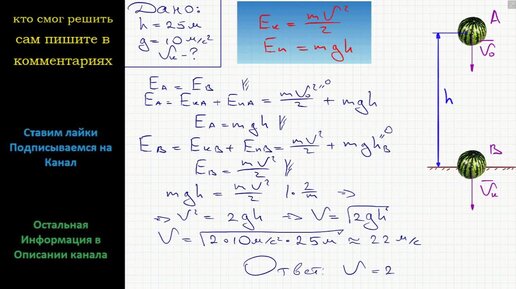 кто смог решить
сам пишите в
комментариях
Ставим лайки
Подписываемся на
Канал
Остальная
Информация в
Описании канала
Дано:
h = 25 м
g = 10 м/с²
Vк - ?
Eк = mV²/2
Eп = mgh
EA = EB
EA = EкA + EпA = mV₀²/2 =0 + mgh
EA = mgh
EB = EкB + EпB = mV²/2 + mghB =0
EB = mV²/2
mgh = mV²/2 | · 2/m ⇒
⇒ V² = 2gh ⇒ V = √2gh
V = √2·10м/с²·25м ≈ 22 м/с
Ответ: V = 2
A
V₀
h
B
Vк